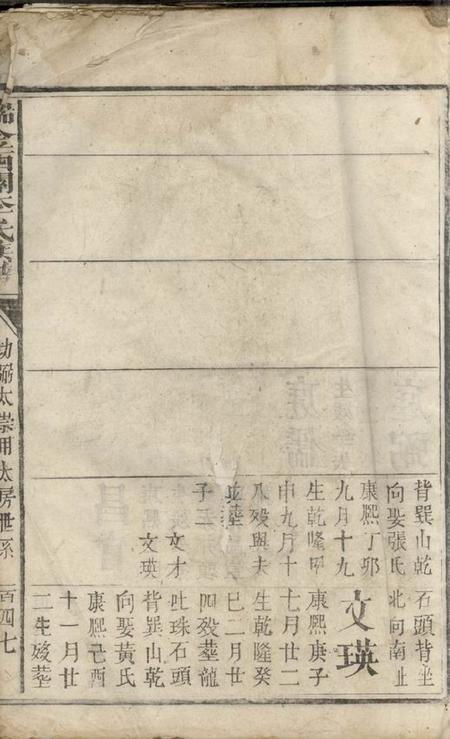 背巽山乾
向娶張氏
康熙丁卯
九月十九
生乾隆甲
申九月十
八歿與夫
並塟
子二
文才
文瑛
石頭背坐
北向南止
文瑛
康熙庚子
七月廿二
生乾隆癸
巳二月廿
四歿塟龍
吐珠石頭
背巽山乾
向娶黃氏
康熙己酉
十一月廿
二生歿塟
金西關李氏族譜
幼弼太崇用太房世系
百四七